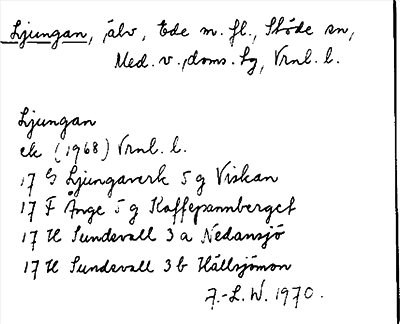 Ljungan, älv, Ede m. fl., Stöde sn,
Med. v., doms. hg, Vrnl. l.
Ljungan
ek (1968) Vrnl. l.
17 G Ljungaverk 5 g Viskan
17 F Ånge 5 g Kaffepannberget
17 H Sundsvall 3 a Nedansjö
17 H Sundsvall 3 b Hällsjömon
F.-L. W. 1970.